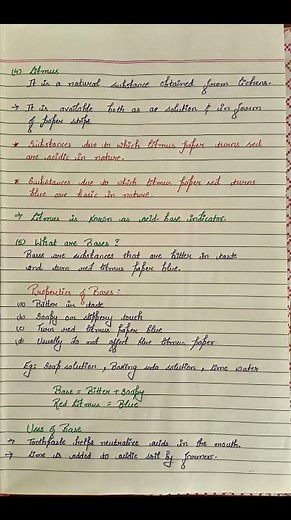 (4) Litmus
It is a natural substance obtained from lichens.
→ It is available both as a solution & in form
of paper strips.
* Substances due to which litmus paper turns red
are acidic in nature.
* Substances due to which litmus paper red turns
blue are basic in nature.
→ Litmus is known as acid-base indicator.
(5) What are Bases?
Bases are substances that are bitter in taste
and turn red litmus paper blue.
Properties of Bases:
(a) Bitter in taste
(b) Soapy or slippery touch
(c) Turn red litmus paper blue
(d) Usually do not affect blue litmus paper
Eg: Soap solution, Baking soda solution, Lime water
Base = Bitter + Soapy
Red Litmus = Blue
Uses of Base
→ Toothpaste helps neutralize acids in the mouth.
→ Lime is added to acidic soil by farmers.